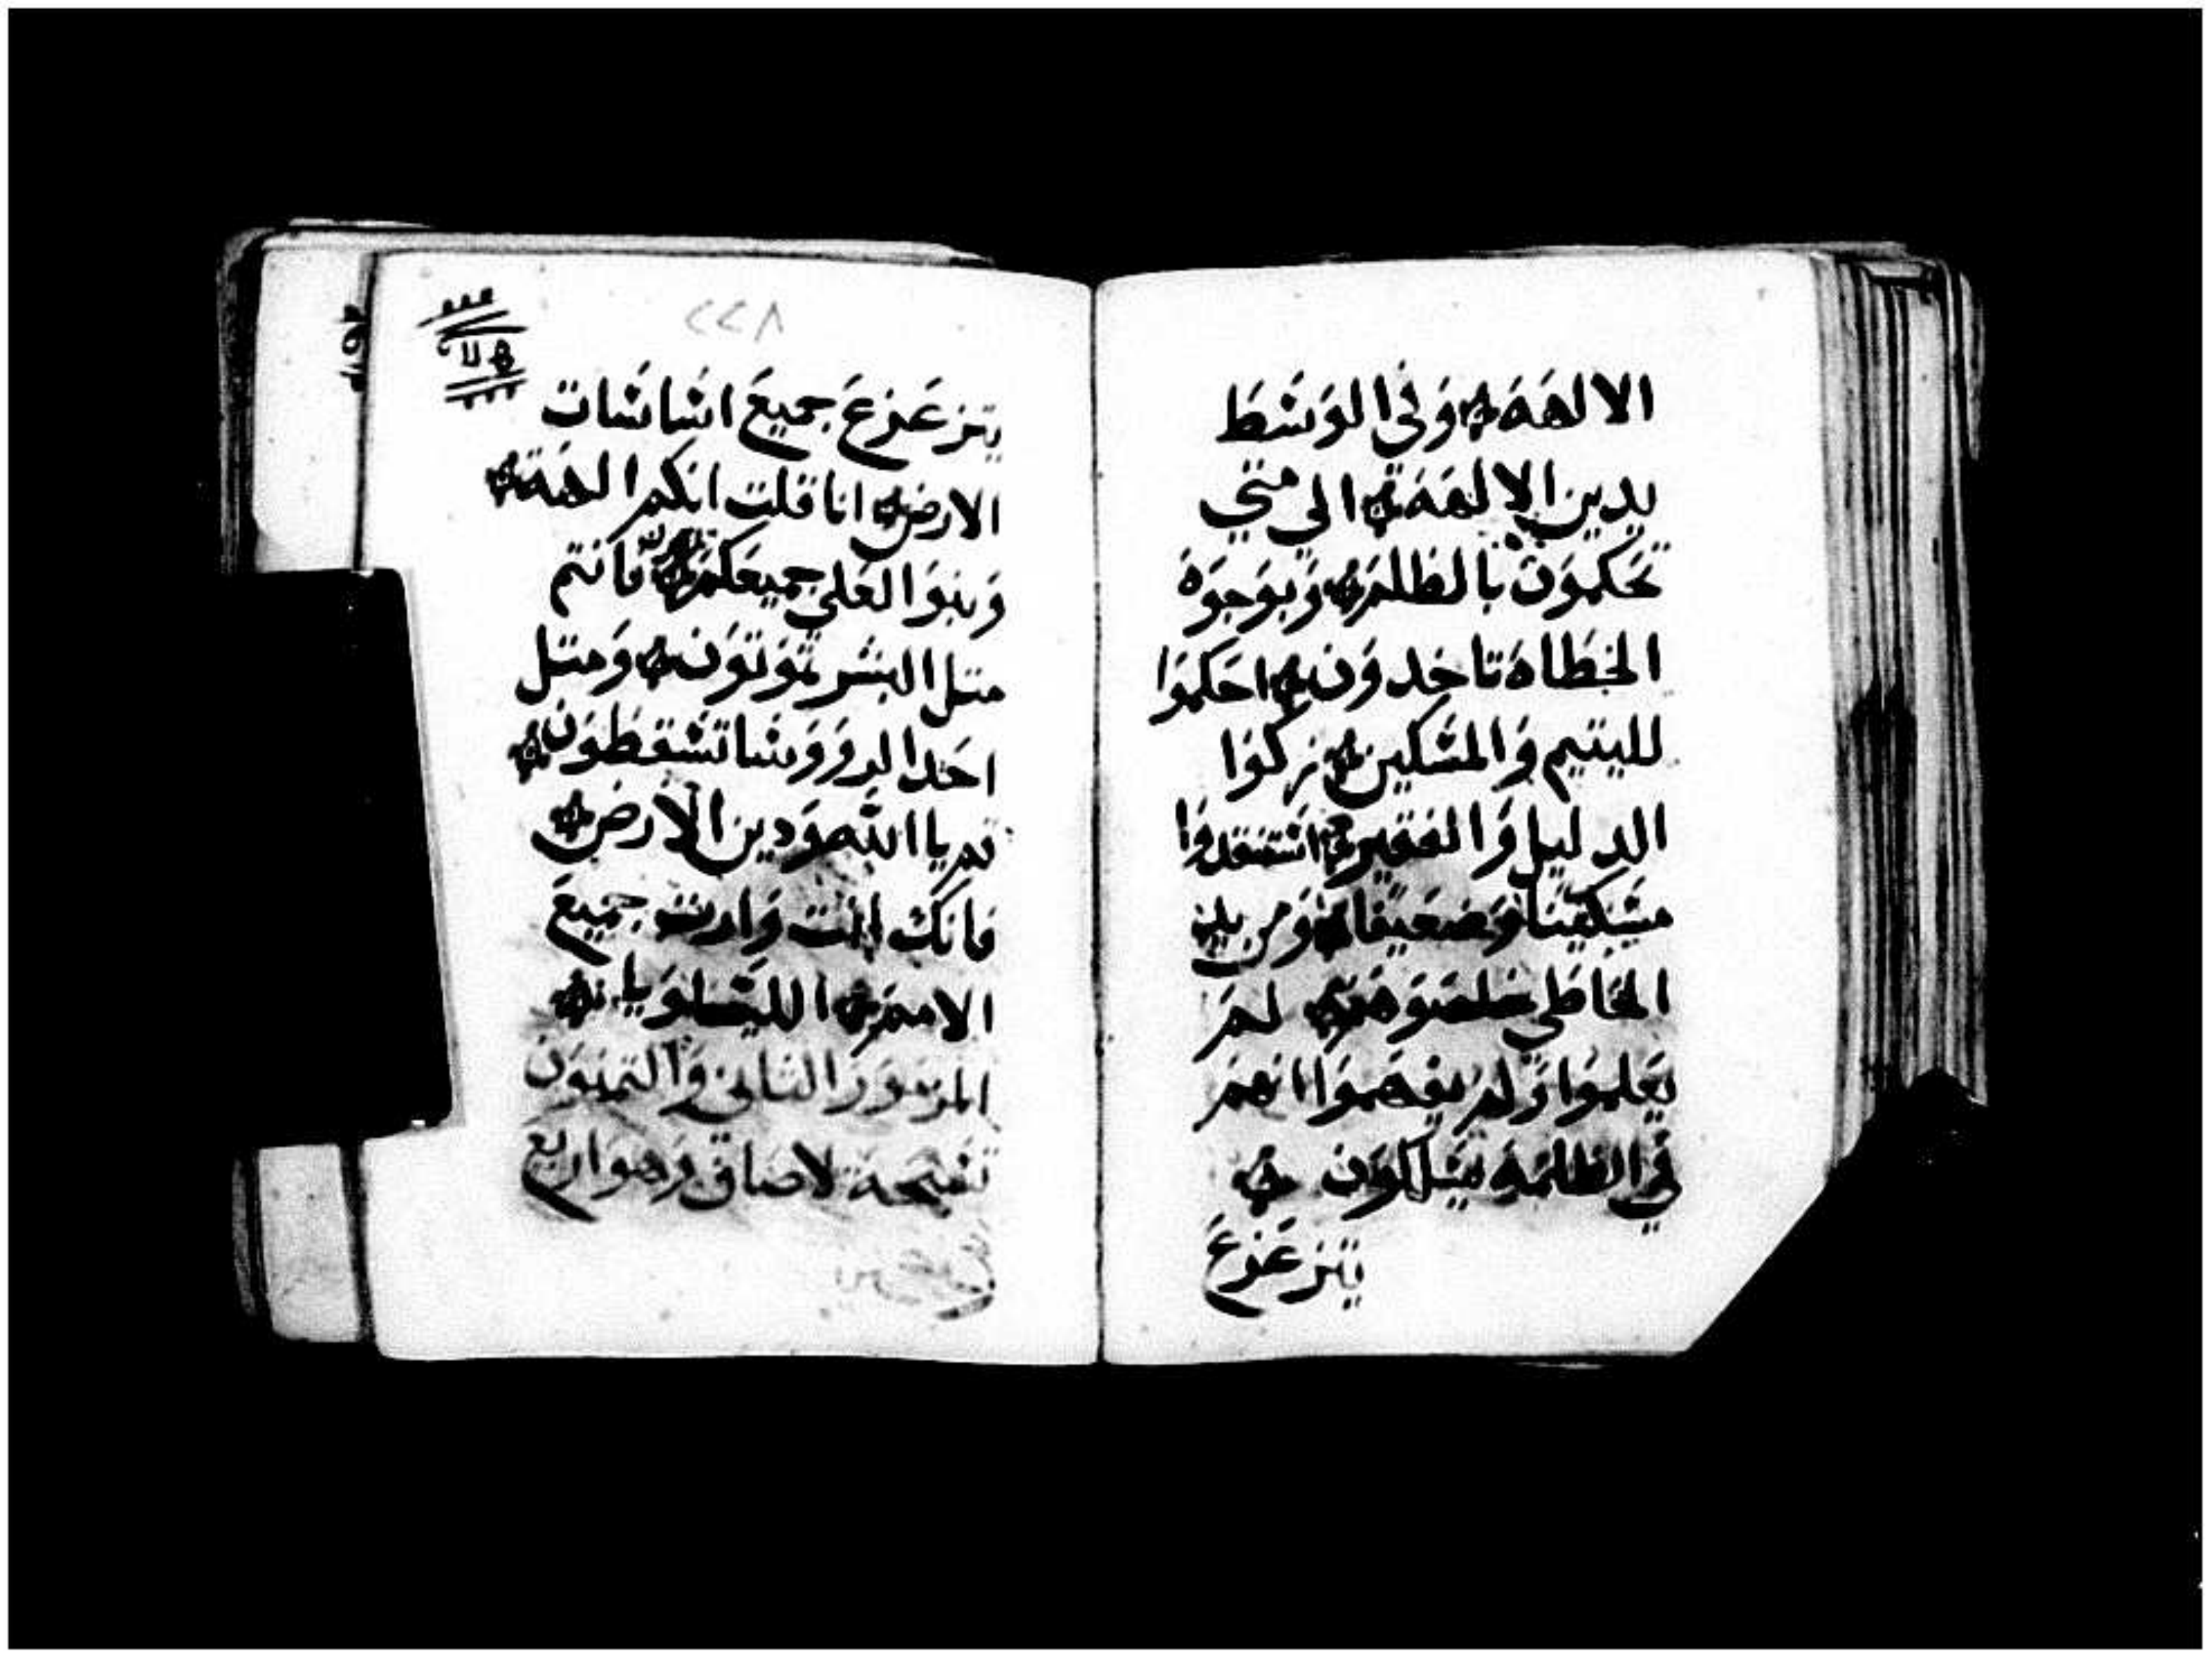 الالهة وفي الوسط
يدين الالهة الي متي
تحكمون بالظلم وبوجوه
الخطاه تاخدون احكموا
لليتيم والمسكين زكوا
الدليل والفقير استنقدوا
مسكينا وضعيفا ومن يدي
الخاطي خلصوهم لم
يعلموا ولم يفهموا انهم
في الظلمة يسلكون
يتزعزع
٢٢٨
يتزعزع جميع اساسات
الارض انا قلت انكم الهة
وبنوا العلي جميعكم فانتم
متل البشر تموتون ومتل
احد الرووسا تسقطون
قم يا الله ودين الارض
فانك انت وارت جميع
الامم الليلويا
المزمور التاني والتمنون
تسبحة لاصاف وهو اربع